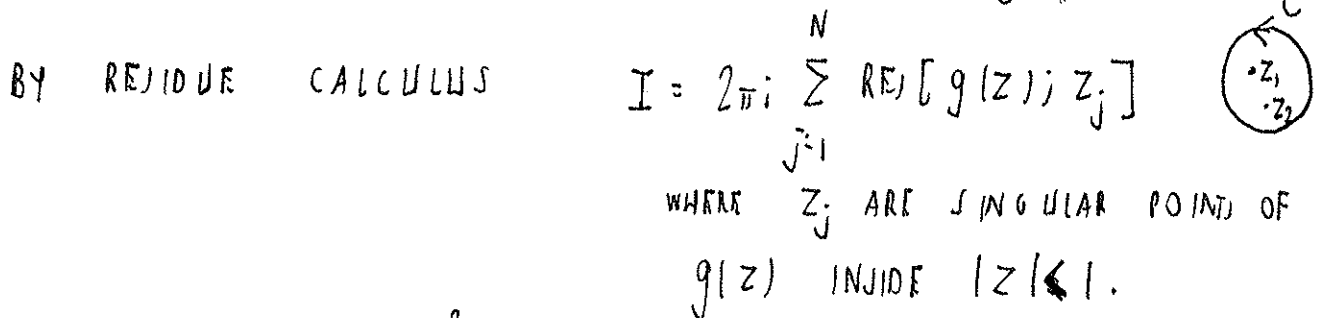 C
BY RESIDUE CALCULUS I = 2πi ∑_{j=1}^{N} RES[g(z); z_j] ·z₁ ·z₂
WHERE z_j ARE SINGULAR POINTS OF
g(z) INSIDE |z| < 1.